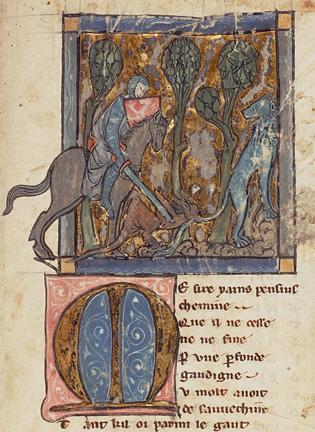 M
E sire yuains pensius
chemine
Que il ne cesse
ne ne fine
P vne pfonde
gaudigne
U molt auoit
de sauuechine
T ant kil oi parmi le gaut